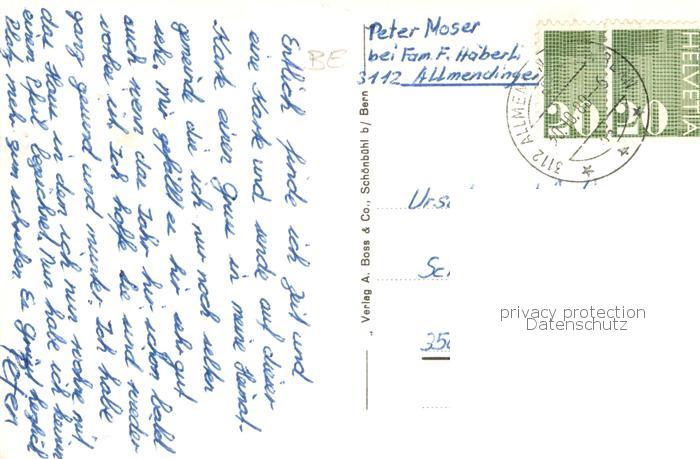 Endlich finde ich Zeit und
eine Karte und sende auf dieser
Karte einen Gruss in meine Heimat-
gemeinde die ich nur noch selten
sehe. mir gefällt es hir sehr gut
auch wenn das Jahr hir schon bald
vorbei ist. Ich hoffe sie sind wieder
ganz gsund und munter. Ich habe
das Haus in dem ich nun wohne mit
einem Pfeil bezeichnet. Nun habe ich keinen
Platz mehr zum schreiben. Es grüsst herzlich
Peter
BE
Peter Moser
bei Fam. F. Häberli
3112 Allmendingen
HELVETIA
20 20
3112 ALLMENDINGEN
Verlag A. Boss & Co., Schönbühl b/ Bern
Urs
Sc
350
privacy protection
Datenschutz